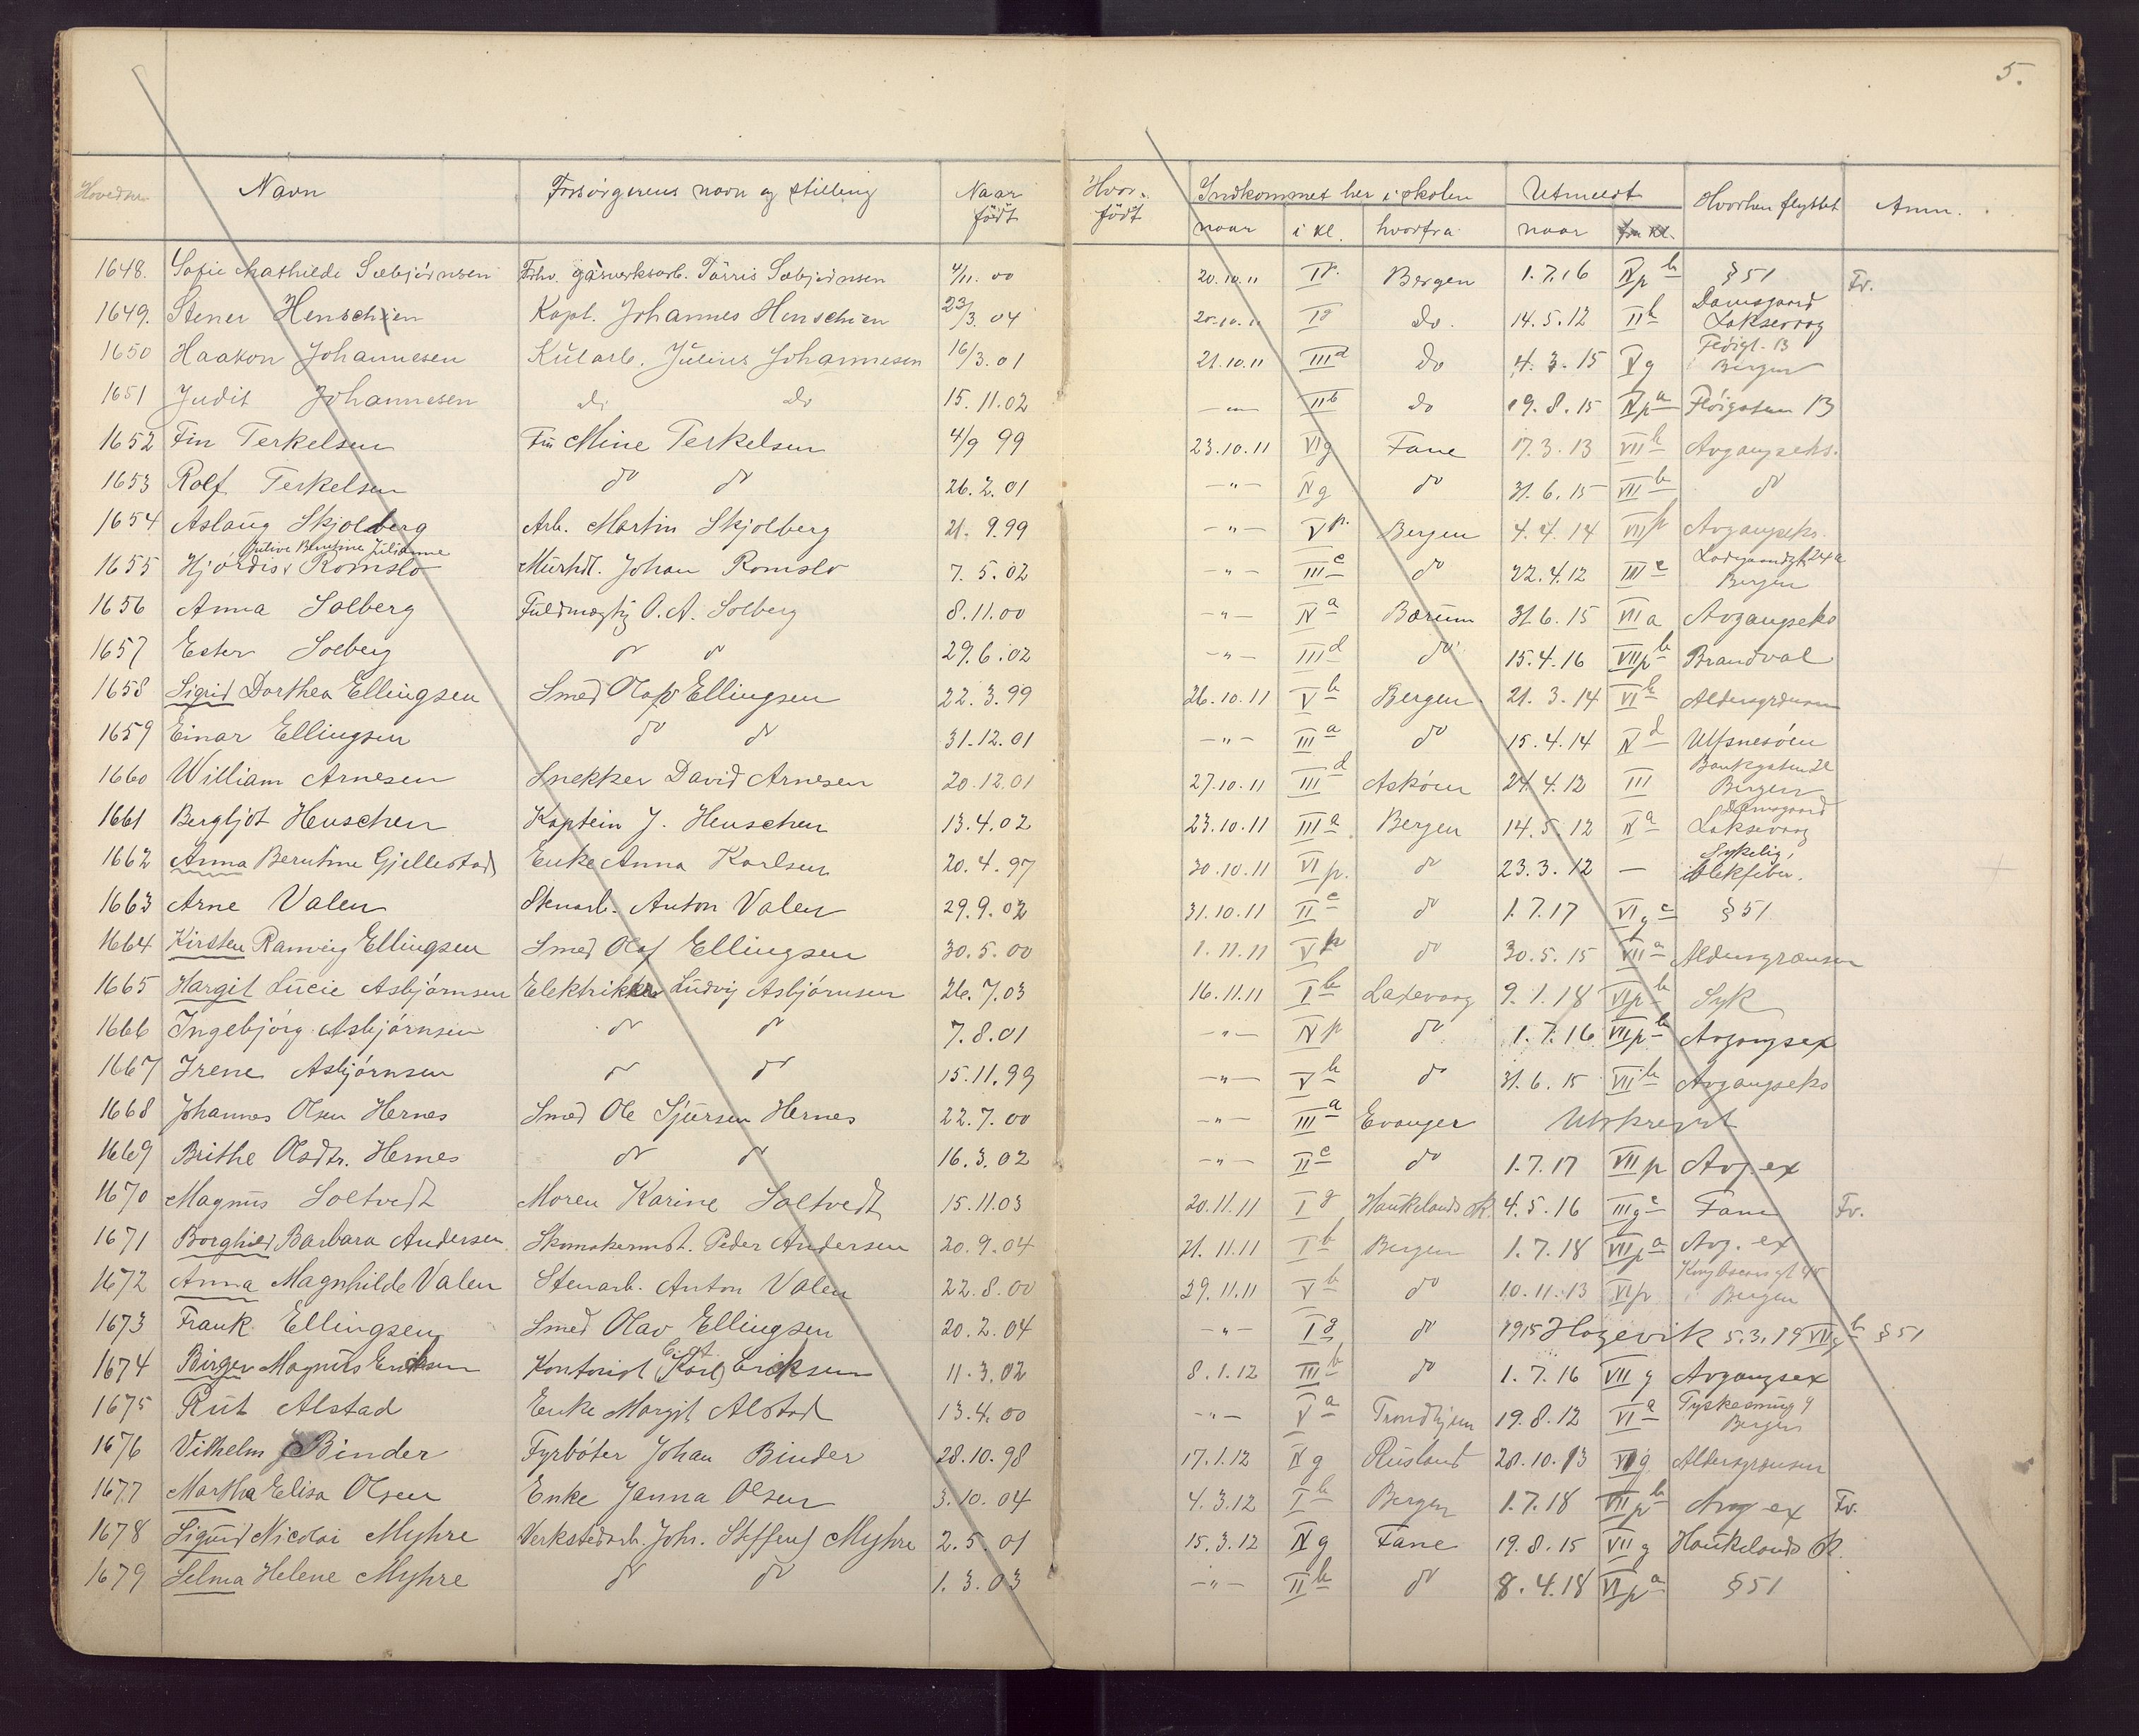 5.
Hovednr. Navn Forsörgerens navn og stilling Naar födt Hvor födt Indkommet her i skolen Utmeldt Hvorhen flyttet Anm.
naar i kl. hvorfra naar fra kl.
1648. Sofie Mathilde Sæbjörnsen Forhv. gasverksarb. Törris Sæbjörnsen 4/11. 00 20.10.11 I g. Bergen 1.7.16 IV p b § 51 Fv.
1649. Stener Henschien Kapt. Johannes Henschien 23/3. 04 20.10.11 I g do. 14.5.12 II b Damsgaard Laksevaag
1650 Haakon Johannesen Kularb. Julius Johannesen 16/3. 01 21.10.11 III d do 4.3.15 V g Flöigt. 13 Bergen
1651 Judit Johannesen do do 15.11.02 -"- II b do 19.8.15 IV p a Flöigaten 13
1652 Fin Terkelsen Fru Mine Terkelsen 4/9 99 23.10.11 VI g Fane 17.3.13 VII b Avgangseks.
1653 Rolf Terkelsen do do 26.2.01 -"- IV g do 31.6.15 VII b do
1654 Aslaug Skjolberg Arb. Martin Skjolberg 21. 9.99 -"- V p. Bergen 4.4.14 VII p Avgangseks.
1655 Hjördis Julianne Romslo Murhdl. Johan Romslo 7.5.02 -"- III c do 22.4.12 III c Ladegaardsgt. 24a Bergen
1656 Anna Solberg Fuldmægtig O. A. Solberg 8.11.00 -"- IV a Bærum 31.6.15 VII a Avgangseks
1657 Ester Solberg do do 29.6.02 -"- III d do 15.4.16 VII p b Brandval
1658 Sigrid Dorthea Ellingsen Smed Olav Ellingsen 22.3.99 26.10.11 V b Bergen 21.3.14 VI b Aldersgrænsen
1659 Einar Ellingsen do do 31.12.01 -"- III a do 15.4.14 IV d Ulfsnesöen
1660 William Arnesen Snekker David Arnesen 20.12.01 27.10.11 III d Asköen 24.4.12 III Baneveien Bergen
1661 Bergljot Henschen Kaptein J. Henschen 13.4.02 23.10.11 III a Bergen 14.5.12 IV a Damsgaard Laksevaag
1662 Anna Berntine Gjellestad Enke Anna Karlsen 20.4.97 30.10.11 VI p. do 23.3.12 — Sykelig,
1663 Arne Valen Stenarb. Anton Valen 29.9.02 31.10.11 II c do 1.7.17 VI g c § 51
1664 Kirsten Ranveig Ellingsen Smed Olaf Ellingsen 30.5.00 1.11.11 V p do 30.5.15 VII a Aldersgrænsen
1665 Hargit Lucie Asbjörnsen Elektriker Ludvig Asbjörnsen 26.7.03 16.11.11 I b Laxevaag 9.1.18 VI p b Syk
1666 Ingebjörg Asbjörnsen do do 7.8.01 -"- IV p do 1.7.16 VII p b Avgangsex
1667 Irene Asbjörnsen do do 15.11.99 -"- V b do 31.6.15 VII b Avgangseks
1668 Johannes Olsen Hernes Smed Ole Sjursen Hernes 22.7.00 -"- III a Evanger Utskrevet
1669 Brithe Olsdtr. Hernes do do 16.3.02 -"- II c do 1.7.17 VII p Avg. ex
1670 Magnus Soltvedt Moren Karine Soltvedt 15.11.03 20.11.11 I g Haukelands sk. 4.5.16 III g c Fane Fv.
1671 Borghild Barbara Andersen Skomakermst. Peder Andersen 20.9.04 21.11.11 I b Bergen 1.7.18 VII p a Avg. ex
1672 Anna Magnhilde Valen Stenarb. Anton Valen 22.8.00 29.11.11 V b do 10.11.13 VI p Kong Oscarsgt 45 Bergen
1673 Frank Ellingsen Smed Olav Ellingsen 20.2.04 -"- I g do 1915 Hagevik 5.3.19 VII g b § 51
1674 Birger Magnus Eriksen Kontorist (Karl) Eriksen 11.3.02 8.1.12 III b do 1.7.16 VII g Avgangsex
1675 Rut Alstad Enke Margit Alstad 13.4.00 -"- V a Trondhjem 19.8.12 VI a Tyskesmug 9 Bergen
1676 Vilhelm Binder Fyrböter Johan Binder 28.10.98 17.1.12 IV g Rusland 28.10.13 VI g Aldersgrænsen
1677 Martha Elisa Olsen Enke Janna Olsen 3.10.04 4.3.12 I b Bergen 1.7.18 VII p b Avg ex Fv.
1678 Sigurd Nicolai Myhre Verkstedarb. Johs. Steffens Myhre 2.5.01 15.3.12 IV g Fane 19.8.15 VII g Haukelands sk.
1679 Selma Helene Myhre do do 1.3.03 -"- II b do 8.4.18 VI p a § 51